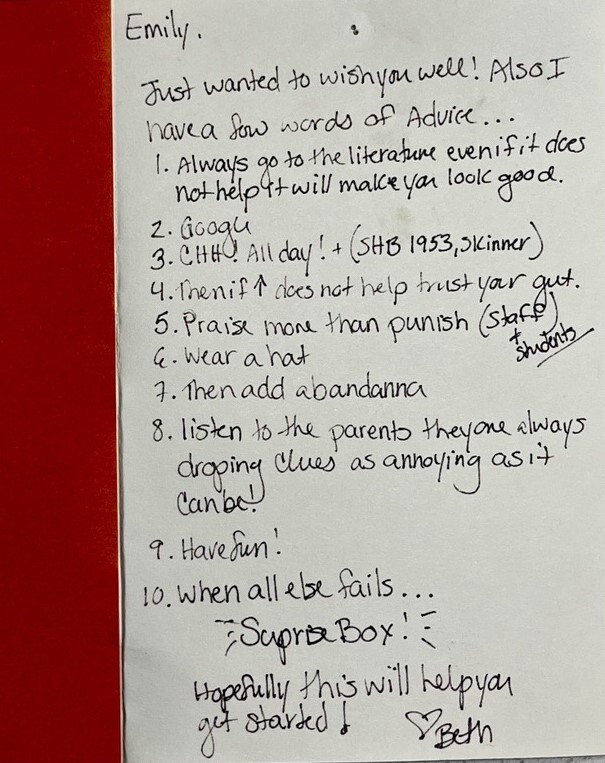 Emily.
Just wanted to wish you well! Also I
have a few words of Advice...
1. Always go to the literature even if it does
not help it will make you look good.
2. Google
3. CHH! All day! + (SHB 1953, Skinner)
4. Then if ↑ does not help trust your gut.
5. Praise more than punish (Staff)
+ students
6. Wear a hat
7. Then add a bandanna
8. listen to the parents they are always
droping clues as annoying as it
can be!
9. Have fun!
10. When all else fails...
Suprise Box!
Hopefully this will help you
get started!
♡ Beth